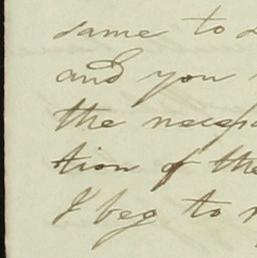 same to
and you
the necess
tion of the
I beg to